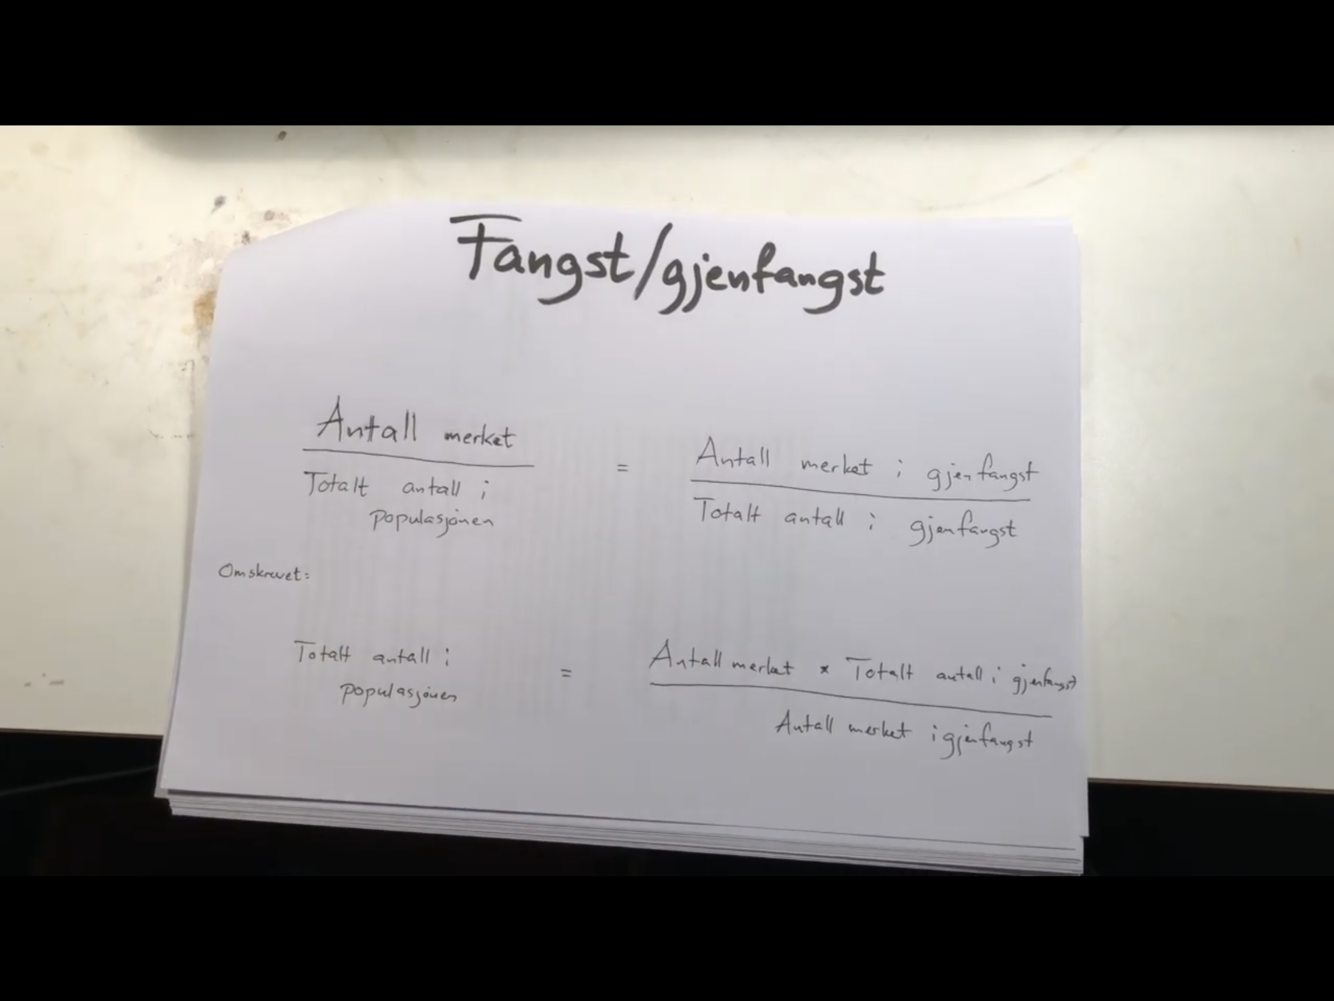 Fangst/gjenfangst
Antall merket
Totalt antall i
populasjonen
=
Antall merket i gjenfangst
Totalt antall i gjenfangst
Omskrevet:
Totalt antall i
populasjonen
=
Antall merket * Totalt antall i gjenfangst
Antall merket i gjenfangst